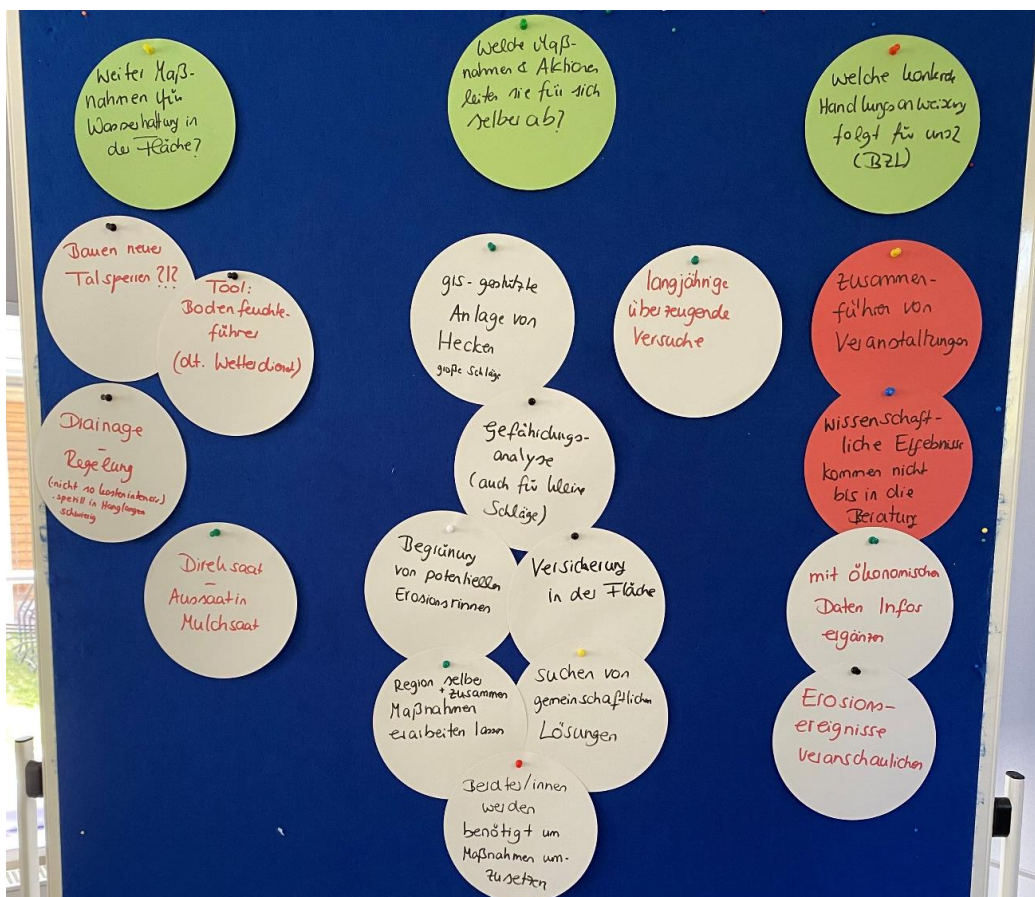 Weiter Maß-
nahmen für
Wasserhaltung in
der Fläche?
Bauen neuer
Talsperren?!?
Tool:
Bodenfeuchte-
führer
(dt. Wetterdienst)
Drainage
-
Regelung
(nicht so kostenintensiv)
- speziell in Hanglangen
schwierig
Direksaat
-
Aussaat in
Mulchsaat
Welche Maß-
nahmen & Aktionen
leiten sie für sich
selber ab?
gis-gestützte
Anlage von
Hecken
große Schläge
langjährige
überzeugende
Versuche
Gefährdungs-
analyse
(auch für kleine
Schläge)
Begrünung
von potentiellen
Erosionsrinnen
Versicherung
in der Fläche
Region selber
+ zusammen
Maßnahmen
erarbeiten lassen
suchen von
gemeinschaftlichen
Lösungen
Berater/innen
werden
benötigt um
Maßnahmen um-
zusetzen
welche konkrete
Handlungsanweisung
folgt für uns?
(BZL)
Zusammen-
führen von
Veranstaltungen
wissenschaft-
liche Ergebnisse
kommen nicht
bis in die
Beratung
mit ökonomischen
Daten Infos
ergänzen
Erosions-
ereignisse
veranschaulichen